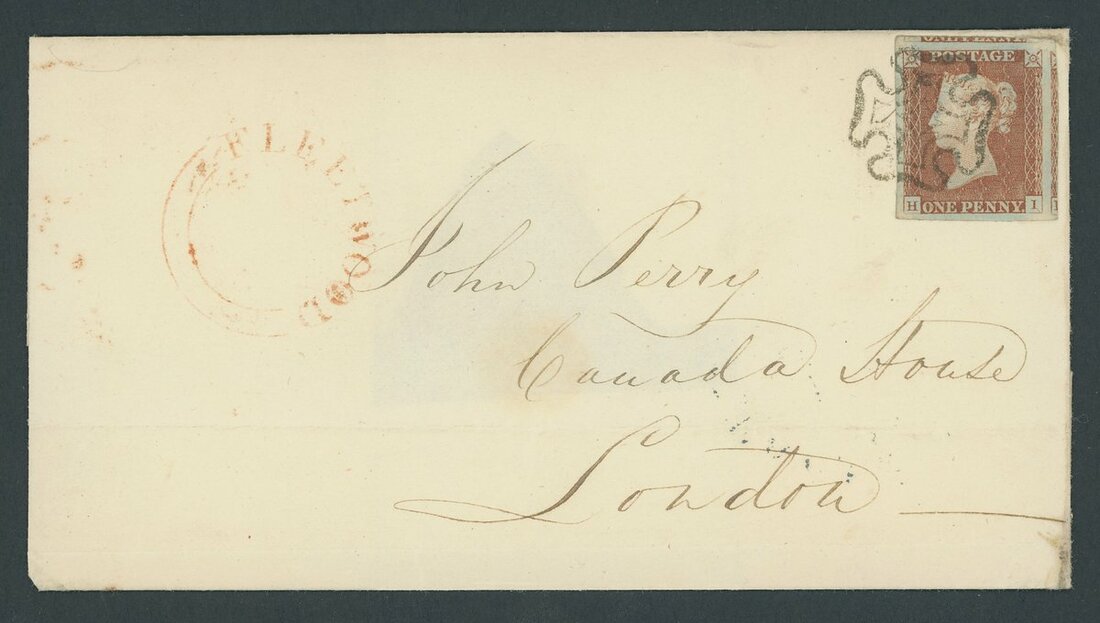 POSTAGE
ONE PENNY
H I
FLEETWOOD
John Perry
Canada House
London